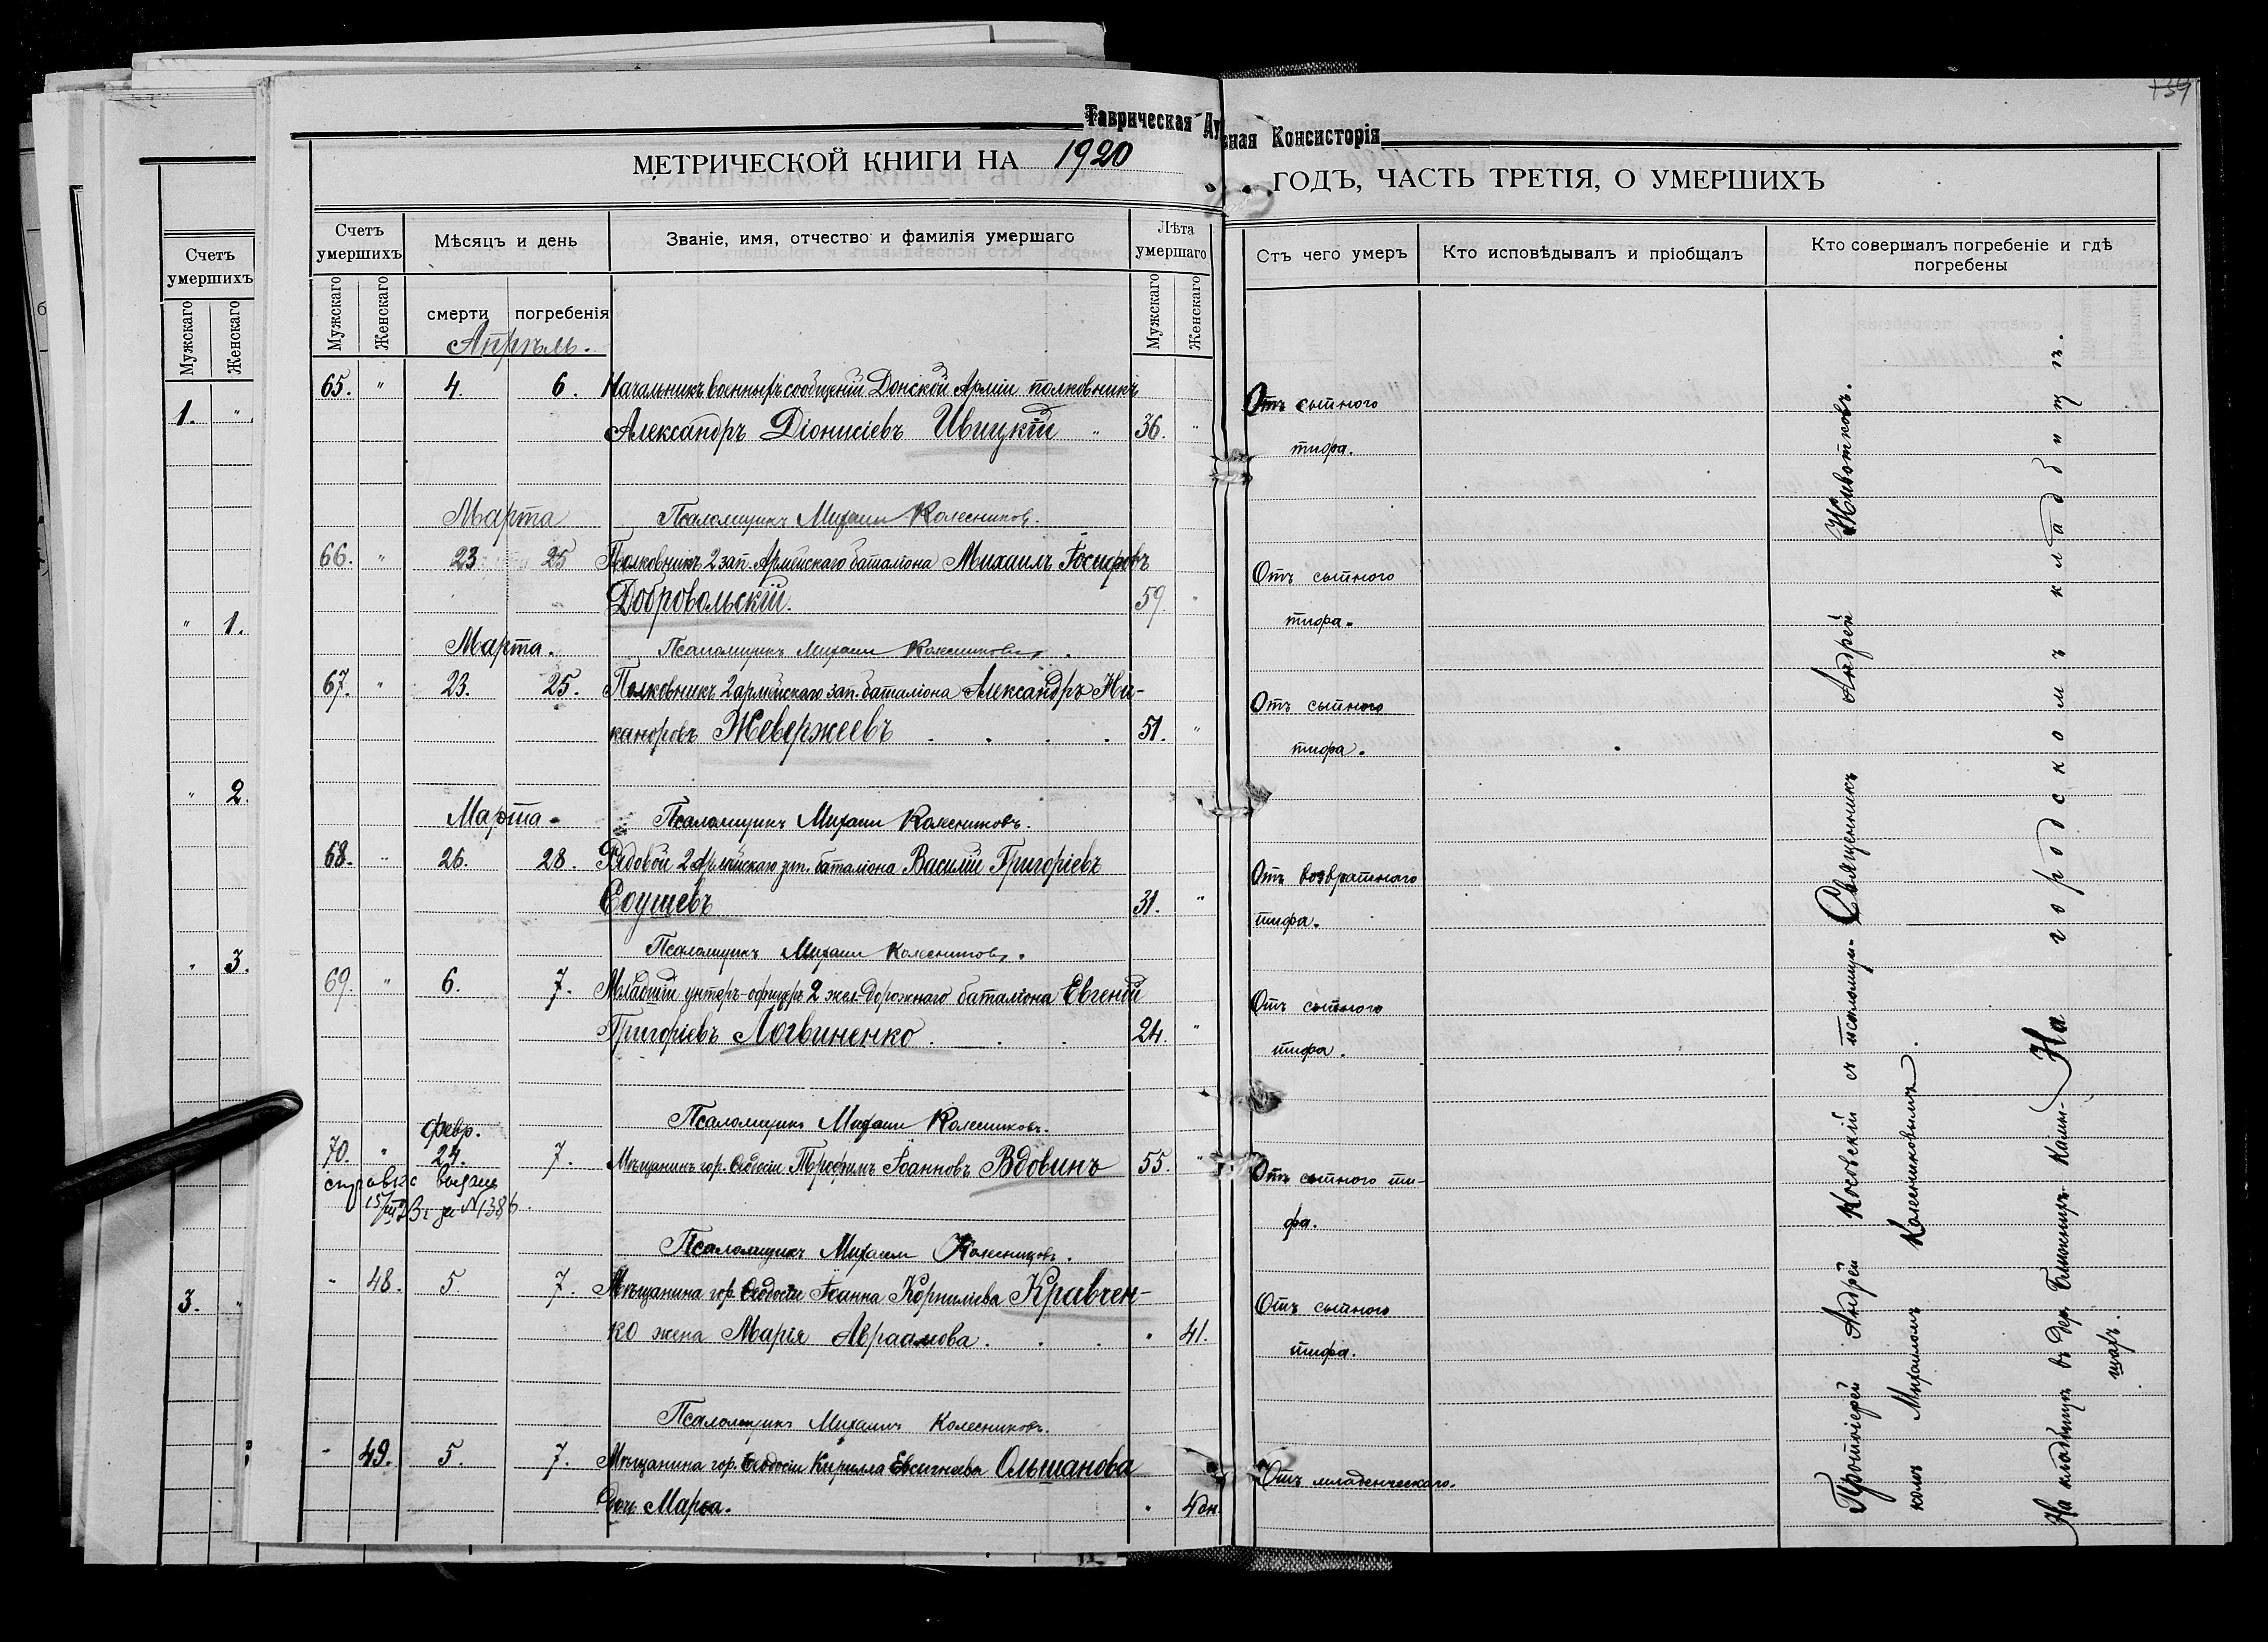 139
Таврическая Духовная Консисторія
МЕТРИЧЕСКОЙ КНИГИ НА 1920 ГОДЪ, ЧАСТЬ ТРЕТІЯ, О УМЕРШИХЪ
Счетъ умершихъ
Мужскаго
Женскаго
1. "
" 1.
" 2.
" 3.
3. "
Счетъ умершихъ
Мѣсяцъ и день
Званіе, имя, отчество и фамилія умершаго
Лѣта умершаго
Отъ чего умеръ
Кто исповѣдывалъ и пріобщалъ
Кто совершалъ погребеніе и гдѣ погребены
Мужскаго
Женскаго
смерти
погребенія
Мужскаго
Женскаго
Апрѣль.
65. " 4. 6. Начальникъ военныхъ сообщеній Донской Арміи полковникъ
Александръ Діонисіевъ Ивицкій " 36. "
Отъ сыпного
тифа.
Псаломщикъ Михаилъ Колесниковъ.
Марта
66. " 23 25 Полковникъ 2 зап. Армейскаго баталіона Михаилъ Іосифовъ
Добровольскій. 59. "
Отъ сыпного
тифа.
Псаломщикъ Михаилъ Колесниковъ.
Марта.
67. " 23. 25. Полковникъ 2 армейскаго зап. баталіона Александръ Ни-
каноровъ Жевержеевъ . . . . 51. "
Отъ сыпного
тифа.
Псаломщикъ Михаилъ Колесниковъ.
Марта.
68. " 26. 28. Рядовой 2 Армейскаго зап. баталіона Василій Григоріевъ
Соушевъ 31. "
Отъ возвратнаго
тифа.
Псаломщикъ Михаилъ Колесниковъ.
69. " 6. 7. Младшій унтеръ-офицеръ 2 жел. дорожнаго баталіона Евгеній
Григоріевъ Логвиненко . . . 24. "
Отъ сыпного
тифа.
Псаломщикъ Михаилъ Колесниковъ.
февр.
70. " 24. 7. Мѣщанинъ гор. Ѳеодосіи Трофимъ Іоанновъ Вдовинъ 55. "
справка выдана
15/III 23 г. за № 1386.
Отъ сыпного ти-
фа.
Псаломщикъ Михаилъ Колесниковъ.
- 48. 5. 7. Мѣщанина гор. Ѳеодосіи Іоанна Корниліева Кравчен-
ко жена Марія Авраамова . . . " 41.
Отъ сыпного
тифа.
Псаломщикъ Михаилъ Колесниковъ.
- 49. 5. 7. Мѣщанина гор. Ѳеодосіи Кирилла Евсигнеева Ольшанова
дочь Марѳа. " 4 дн.
Отъ младенческаго.
Протоіерей Андрей Косовскій съ псаломщи-
комъ Михаиломъ Колесниковымъ.
Священникъ Андрей Животковъ.
На кладбищѣ въ дер. Ближнихъ Камы-
шахъ.
На городскомъ кладбищѣ.